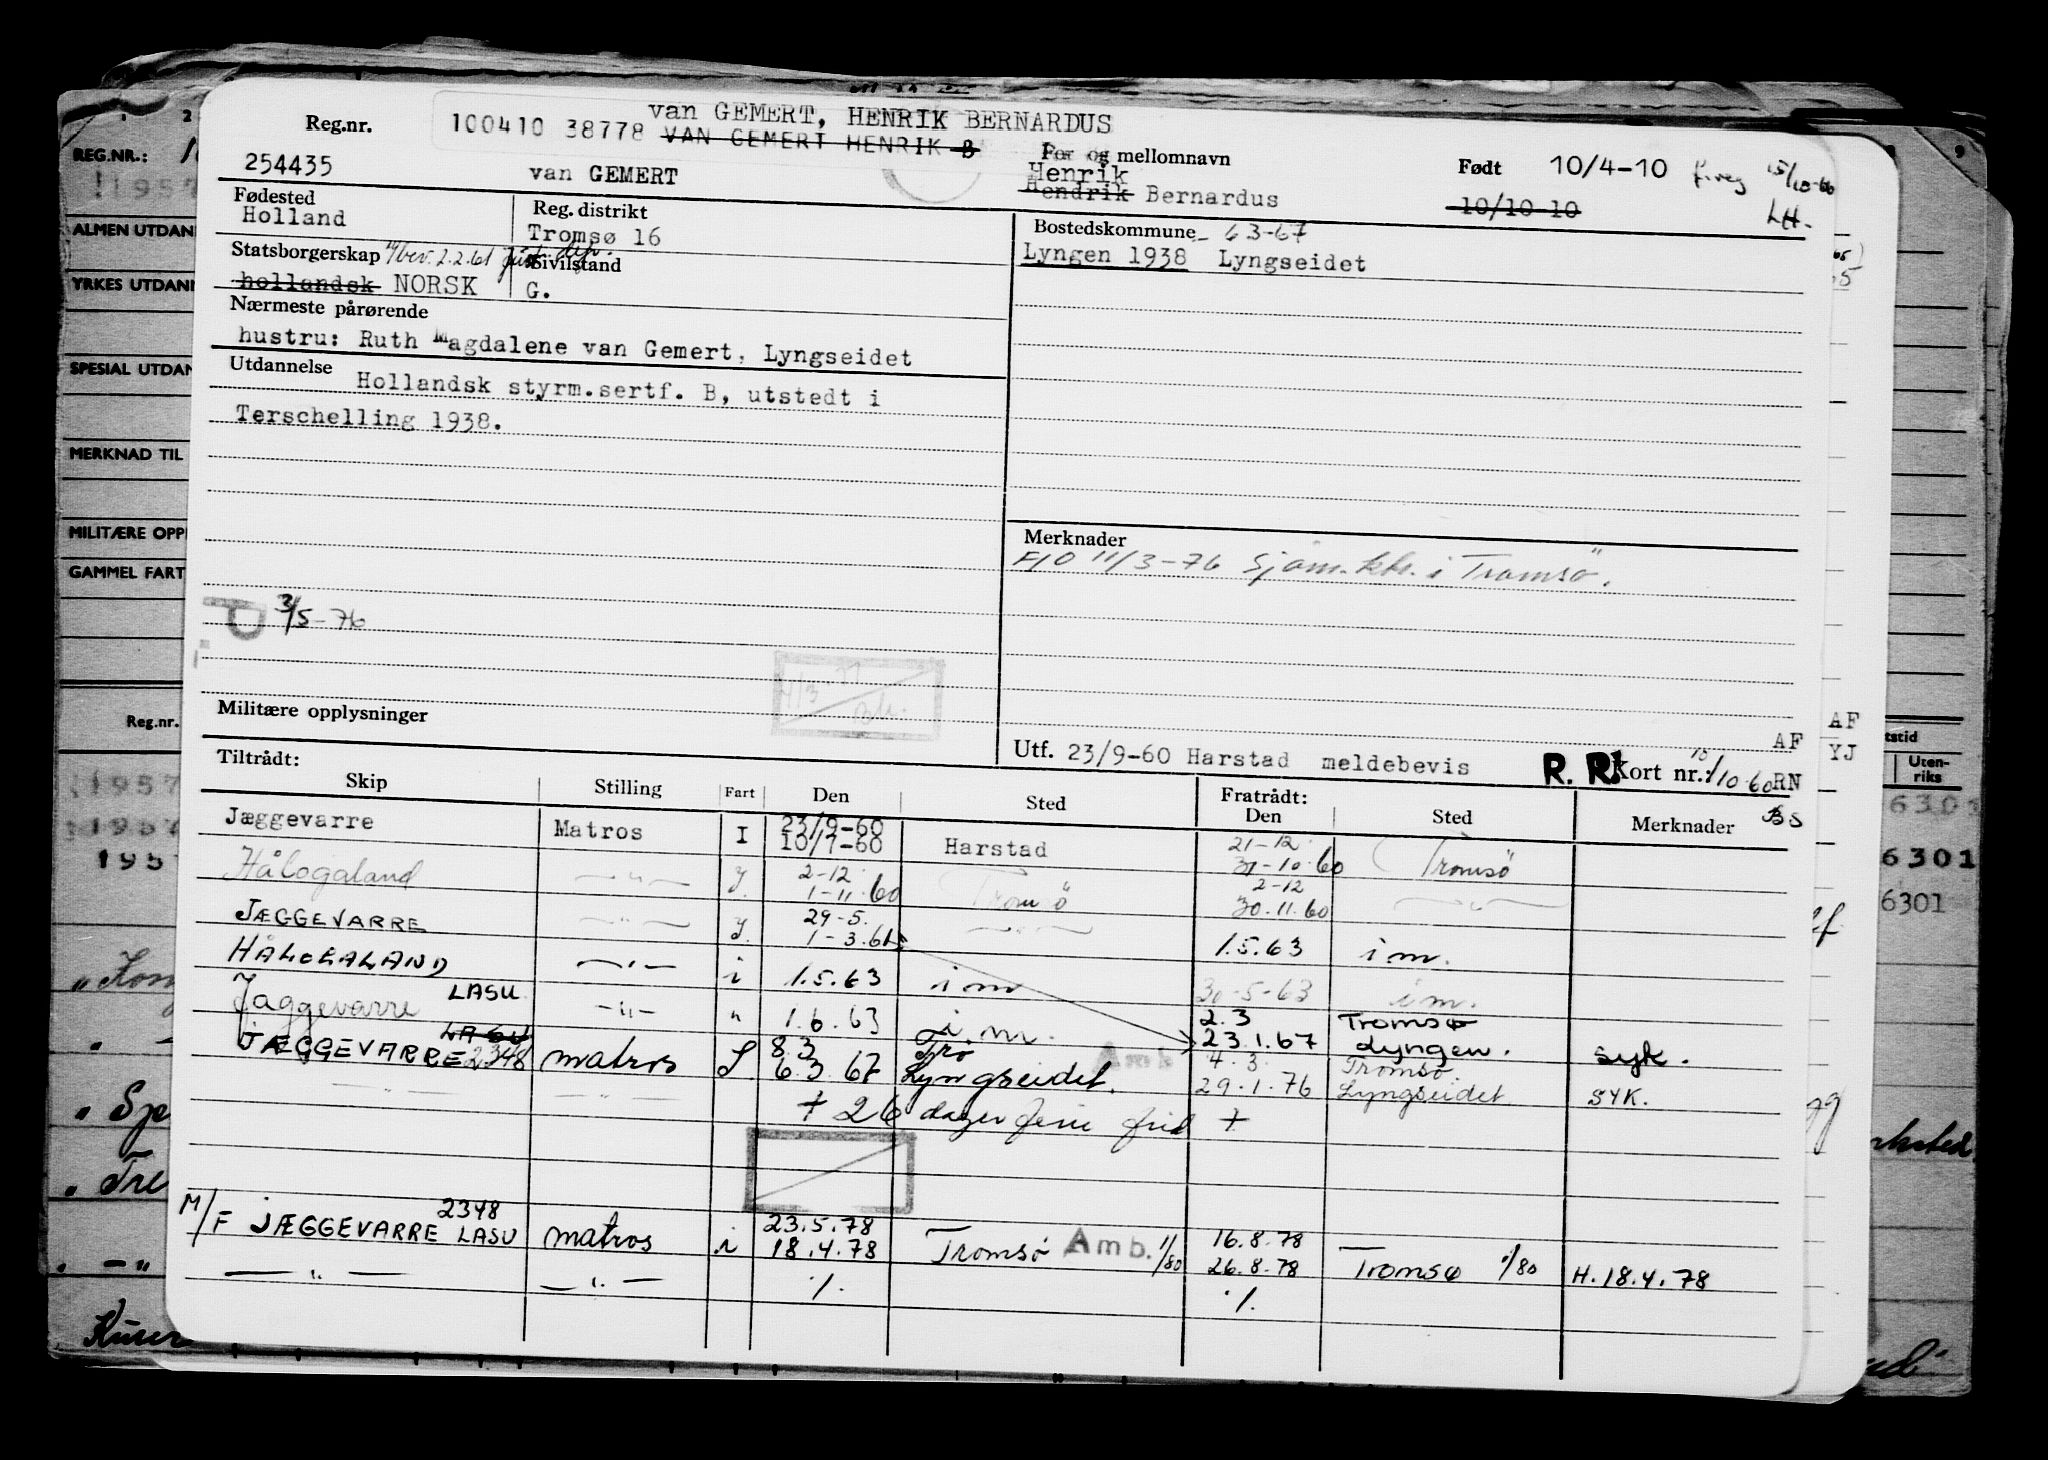 van GEMERT, HENRIK BERNARDUS
Reg.nr. 100410 38778 VAN GEMERT HENRIK B
254435 van GEMERT
For og mellomnavn
Henrik
Hendrik Bernardus
Født 10/4-10
10/10-10
15/10-60
LH.
Fødested
Holland
Reg. distrikt
Tromsø 16
Bostedskommune - 63-67
Lyngen 1938 Lyngseidet
Statsborgerskap
hollandsk NORSK
Sivilstand
G.
Nærmeste pårørende
hustru: Ruth Magdalene van Gemert, Lyngseidet
Utdannelse
Hollandsk styrm.sertf. B, utstedt i
Terschelling 1938.
Merknader
FIO 11/3-76 Sjøm.ktr. i Tromsø.
3/5-76
Militære opplysninger
Utf. 23/9-60 Harstad meldebevis
R. R. Kort nr.: 15/10-60
AF
RN
BS
Tiltrådt:
Skip Stilling Fart Den Sted
Fratrådt:
Den Sted Merknader
Jæggevarre Matros I 23/9-60 10/7-60 Harstad 21-12 31-10-60 Tromsø
Hålogaland -"- 2-12 1-11-60 Tromsø 2-12 30.11.60 -"-
JÆGGEVARRE -"- 29-5. 1-3.61 -"- 1.5.63 i m.
HÅLOGALAND -"- i 1.5.63 i m 30-5-63 i m.
Jæggevarre LASU -"- " 1.6.63 i m. 2.3 23.1.67 Tromsø Lyngen. Syk.
JÆGGEVARRE LASU 2348 matros 8.3 6.3.67 Trø Lyngseidet. Amb 4.3. 29.1.76 Tromsø Lyngseidet SYK.
-"- -"- + 26 dager ferie frid +
M/F JÆGGEVARRE 2348 LASU matros i 23.5.78 18.4.78 Tromsø Amb. 1/80 16.8.78 26.8.78 Tromsø 1/80 H.18.4.78
-"- -"- ./. ./.
REG.NR.:
ALMEN UTDAN
YRKES UTDANN
SPESIAL UTDAN
MERKNAD TIL
MILITÆRE OPPL
GAMMEL FART
Reg.nr.
1957
1957
AF
YJ
Uten-
riks
6301
6301
6301